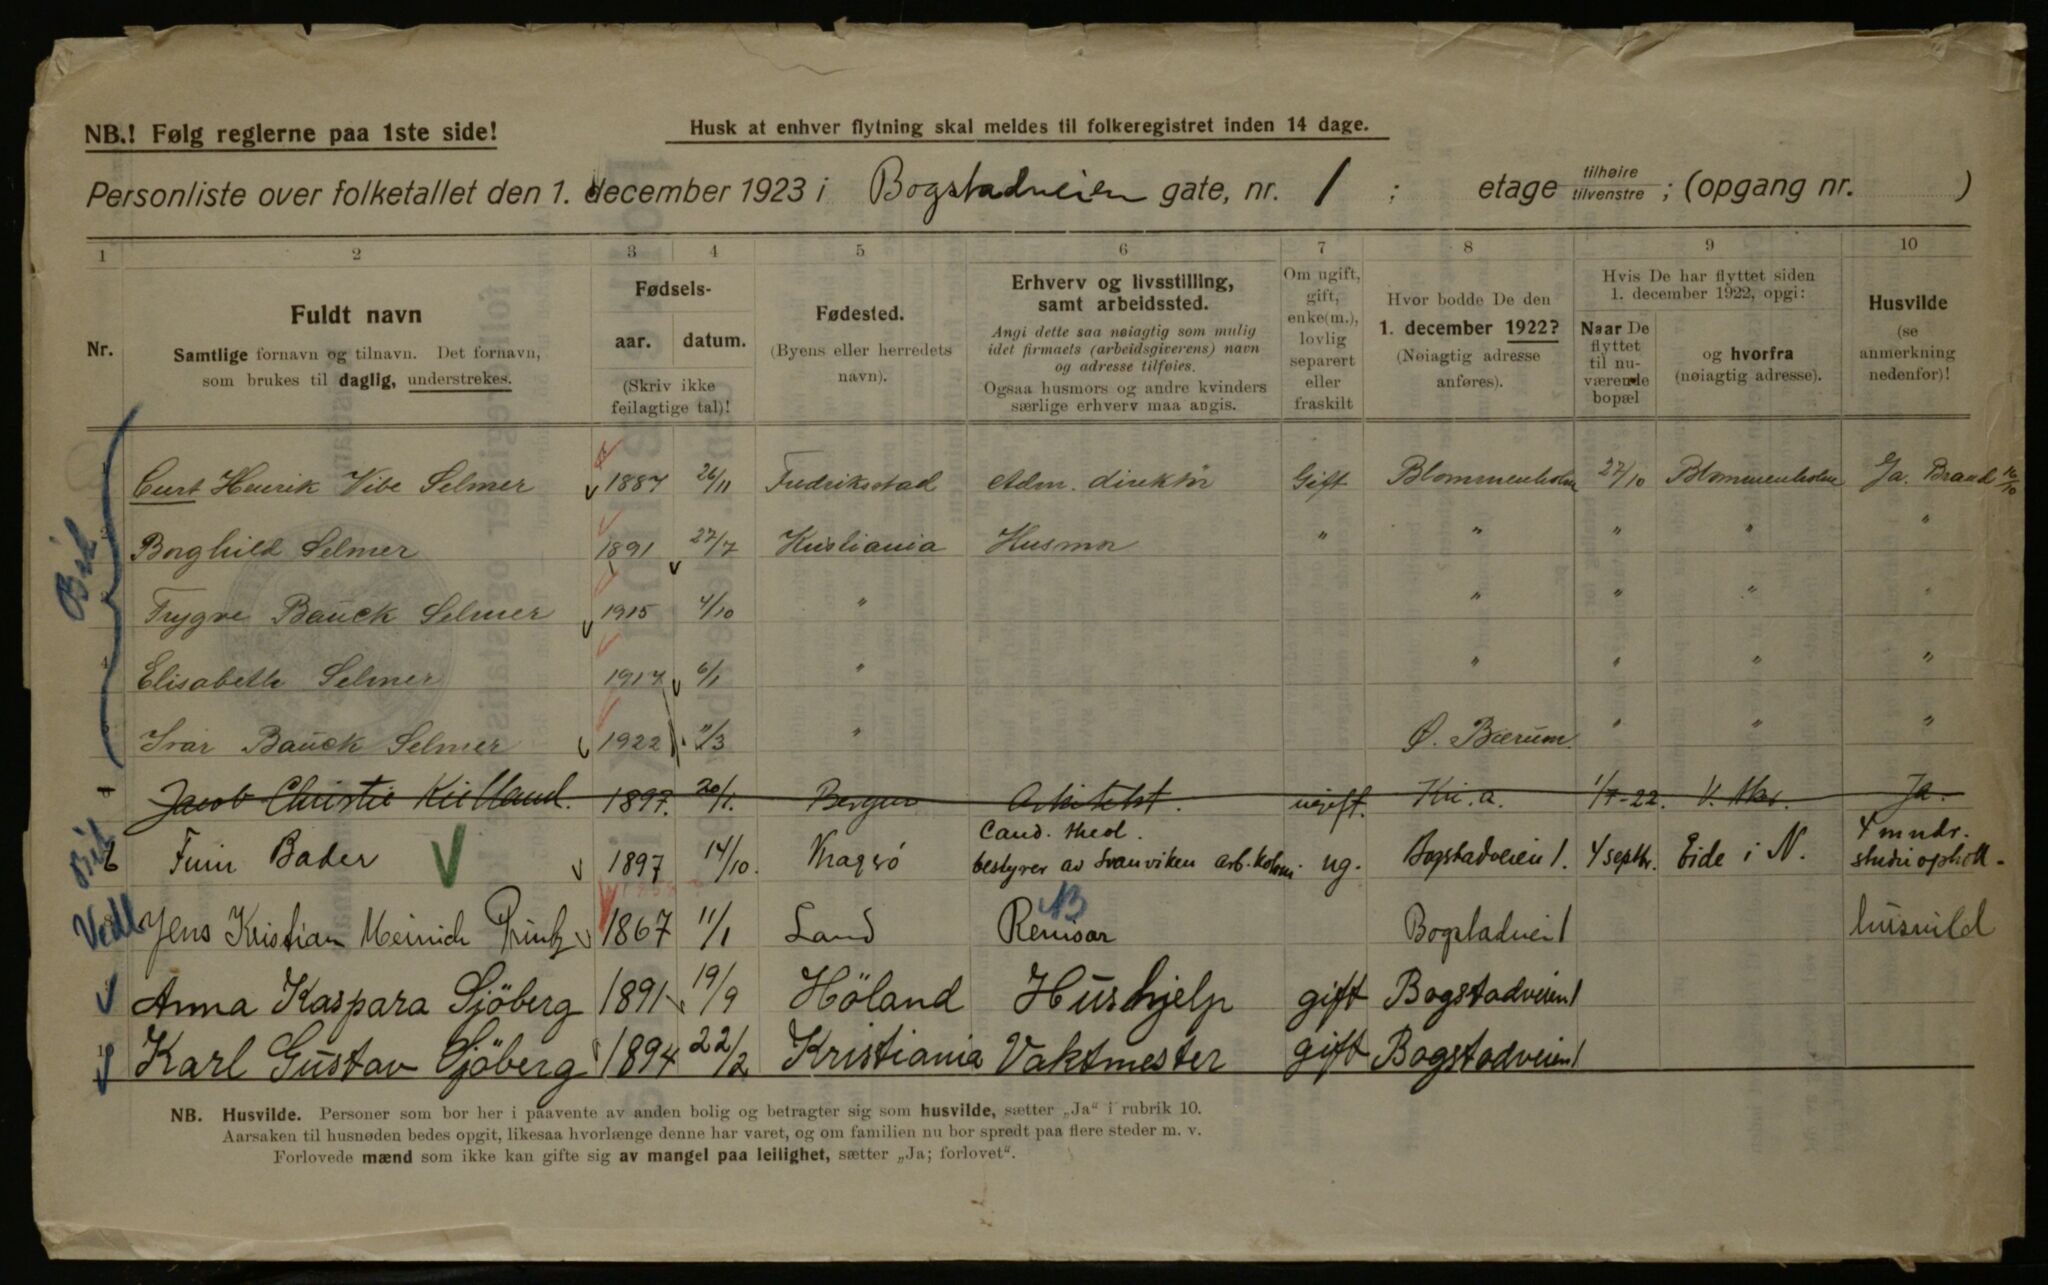 NB.! Følg reglerne paa 1ste side!
Husk at enhver flytning skal meldes til folkeregistret inden 14 dage.
Personliste over folketallet den 1. december 1923 i Bogstadveien gate, nr. 1 ; etage tilhøire tilvenstre ; (opgang nr. )
1 2 3 4 5 6 7 8 9 10
Nr.
Fuldt navn
Samtlige fornavn og tilnavn. Det fornavn,
som brukes til daglig, understrekes.
Fødsels-
aar. datum.
(Skriv ikke
feilagtige tal)!
Fødested.
(Byens eller herredets
navn).
Erhverv og livsstilling,
samt arbeidssted.
Angi dette saa nøiagtig som mulig
idet firmaets (arbeidsgiverens) navn
og adresse tilføies.
Ogsaa husmors og andre kvinders
særlige erhverv maa angis.
Om ugift,
gift,
enke(m.),
lovlig
separert
eller
fraskilt
Hvor bodde De den
1. december 1922?
(Nøiagtig adresse
anføres).
Hvis De har flyttet siden
1. december 1922, opgi:
Naar De
flyttet
til nu-
værende
bopæl
og hvorfra
(nøiagtig adresse).
Husvilde
(se
anmerkning
nedenfor)!
Curt Henrik Vibe Selmer 1887 26/11 Fredriksstad Adm. direktör Gift Blommenholm 27/10 Blommenholm Ja. Brand 16/10
Borghild Selmer 1891 27/7 Kristiania Husmor " " " " "
Trygve Bauck Selmer 1915 4/10 " " " " "
Elisabeth Selmer 1917 6/1 " " " " "
Ivar Bauck Selmer 1922 11/3 " Ø. Bærum. " " "
Jacob Christie Kielland. 1897. 20/1. Bergen Arkitekt. ugift. Kri.a. 1/7-22. V. Aker. Ja.
6 Finn Bader 1897 14/10. Kragerö Cand. theol.
bestyrer av Svanviken arb.koloni ug. Bogstadveien 1. 4 septbr. Eide i N. 4 mndr.
studieophold.
Jens Kristian Meinich Printz 1867 11/1 Land Revisor Bogstadvei 1 husvild
Anna Kaspara Sjöberg 1891 19/9 Höland Hushjelp gift Bogstadveien 1
Karl Gustav Sjöberg 1894 22/2 Kristiania Vaktmester gift Bogstadveien 1
NB. Husvilde. Personer som bor her i paavente av anden bolig og betragter sig som husvilde, sætter „Ja“ i rubrik 10.
Aarsaken til husnøden bedes opgit, likesaa hvorlænge denne har varet, og om familien nu bor spredt paa flere steder m. v.
Forlovede mænd som ikke kan gifte sig av mangel paa leilighet, sætter „Ja; forlovet“.